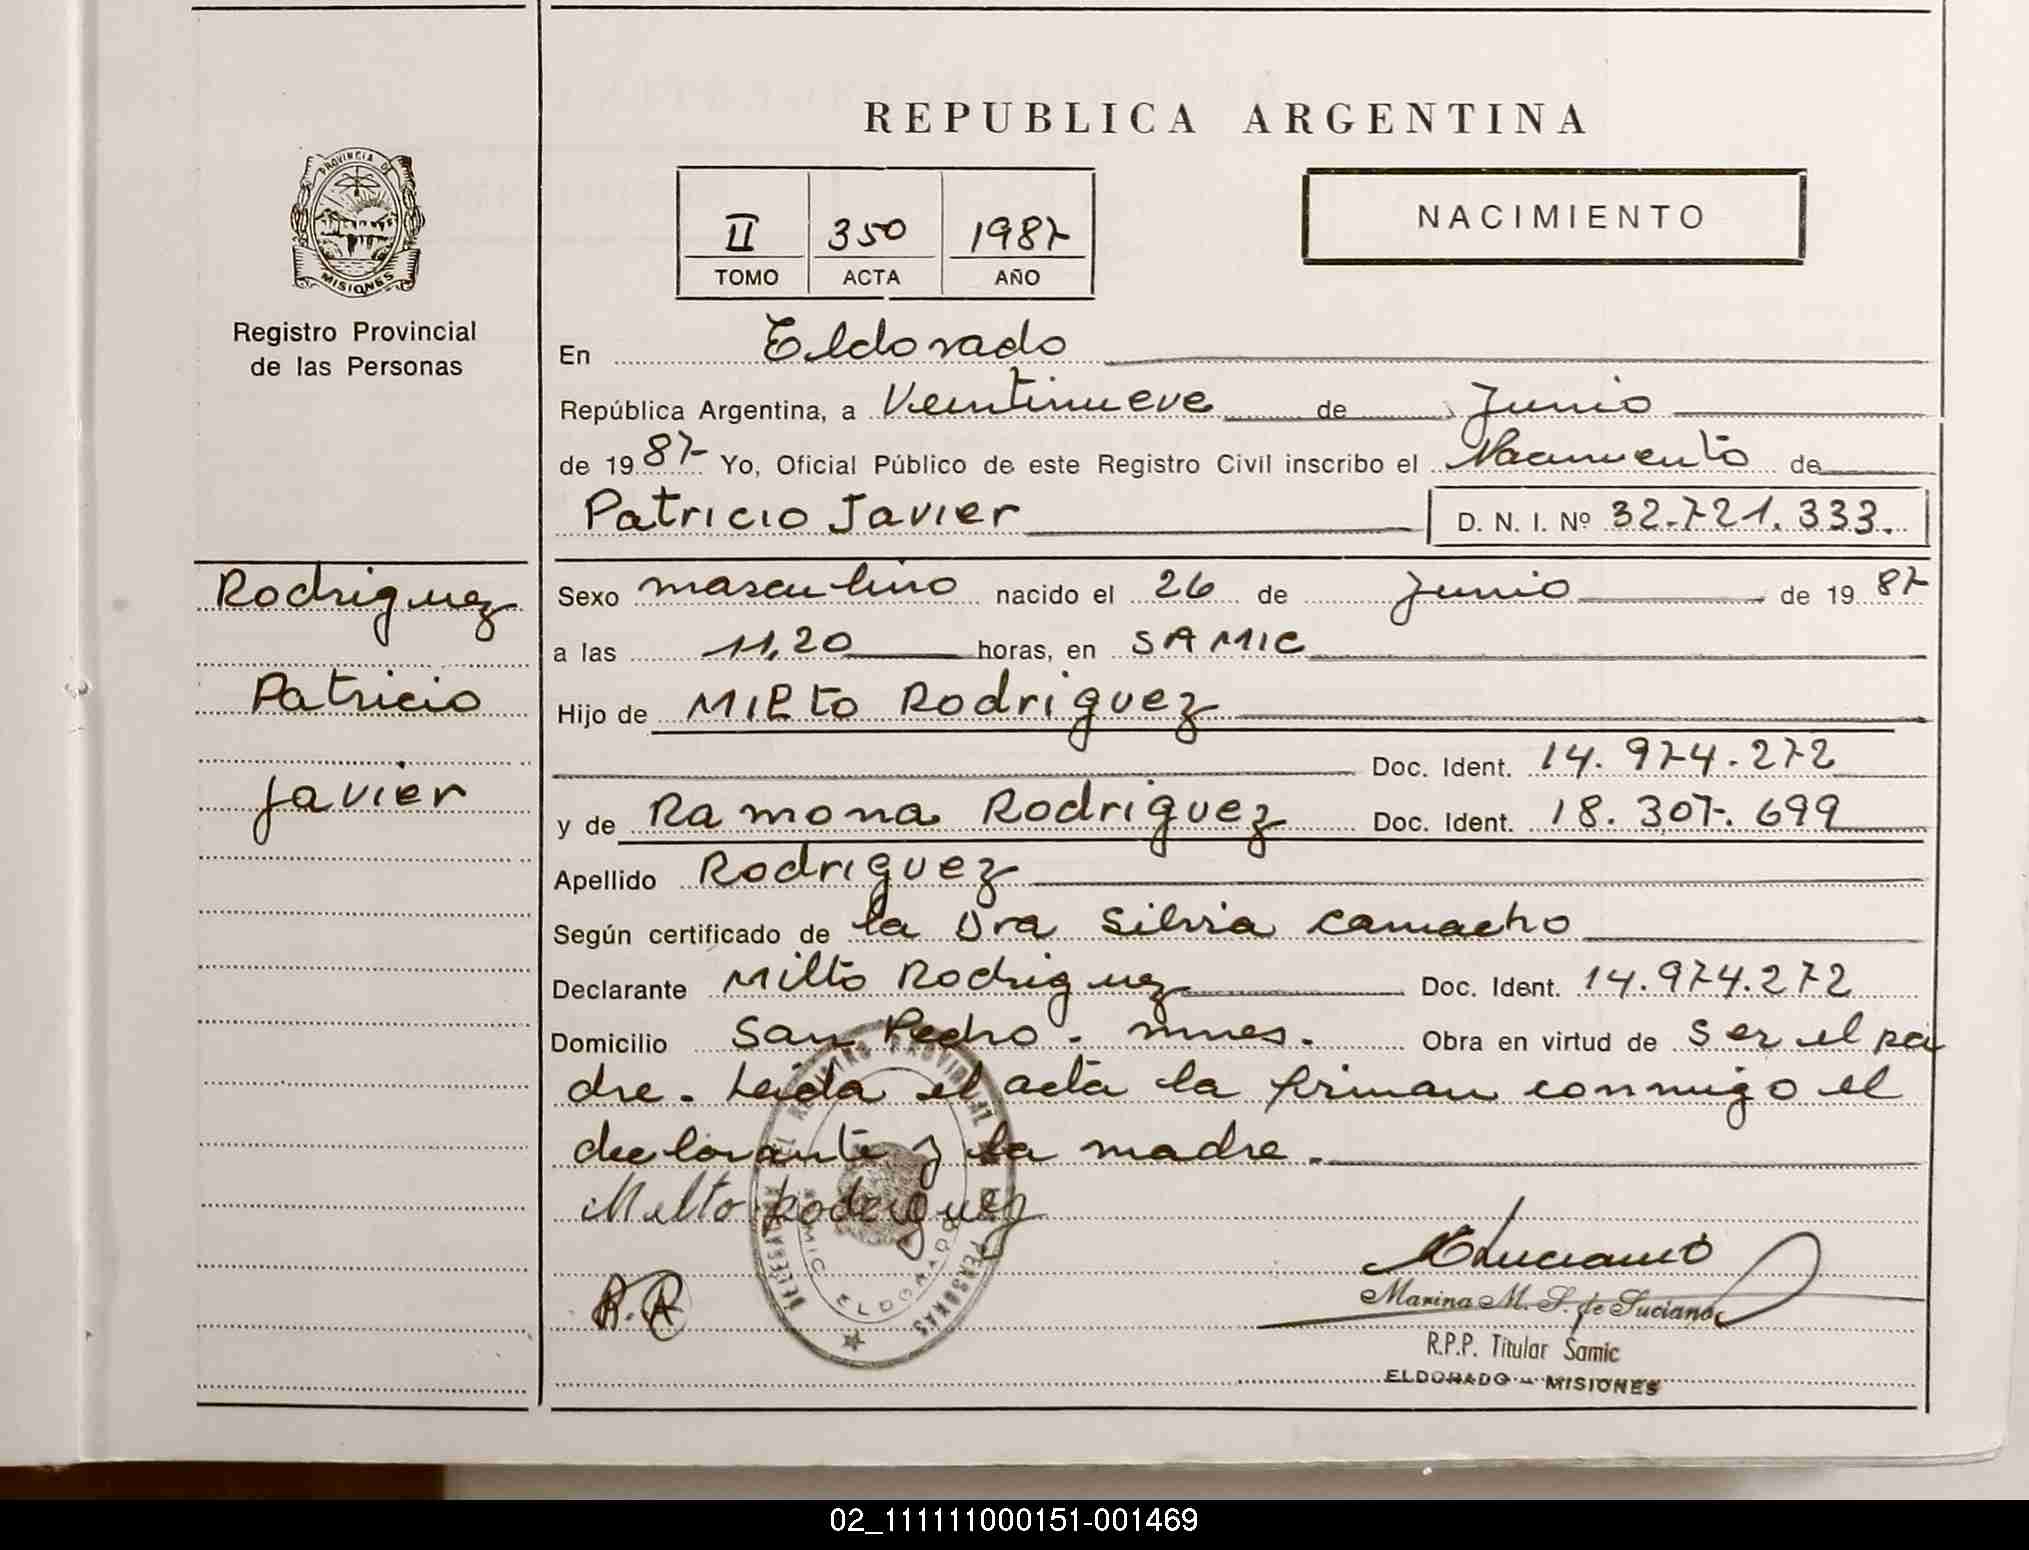 REPUBLICA ARGENTINA
PROVINCIA DE
MISIONES
Registro Provincial
de las Personas
II 350 1987
TOMO ACTA AÑO
NACIMIENTO
En Eldorado
República Argentina, a Veintinueve de Junio
de 1987 Yo, Oficial Público de este Registro Civil inscribo el Nacimiento de
Patricio Javier D. N. I. Nº 32.721.333.
Rodriguez
Patricio
Javier
Sexo masculino nacido el 26 de Junio de 1987
a las 11,20 horas, en SAMIC
Hijo de Milto Rodriguez
Doc. Ident. 14.974.272
y de Ramona Rodriguez Doc. Ident. 18.307.699
Apellido Rodriguez
Según certificado de la Dra Silvia Camacho
Declarante Milto Rodriguez Doc. Ident. 14.974.272
Domicilio San Pedro. mnes. Obra en virtud de ser el pa
dre. Leida el acta la firman conmigo el
declarante y la madre.
Milto Rodriguez
R.R
REGISTRO PROVINCIAL DE LAS PERSONAS
SAMIC ELDORADO
Luciano
Marina M. S. de Luciano
R.P.P. Titular Samic
ELDORADO - MISIONES
02_111111000151-001469